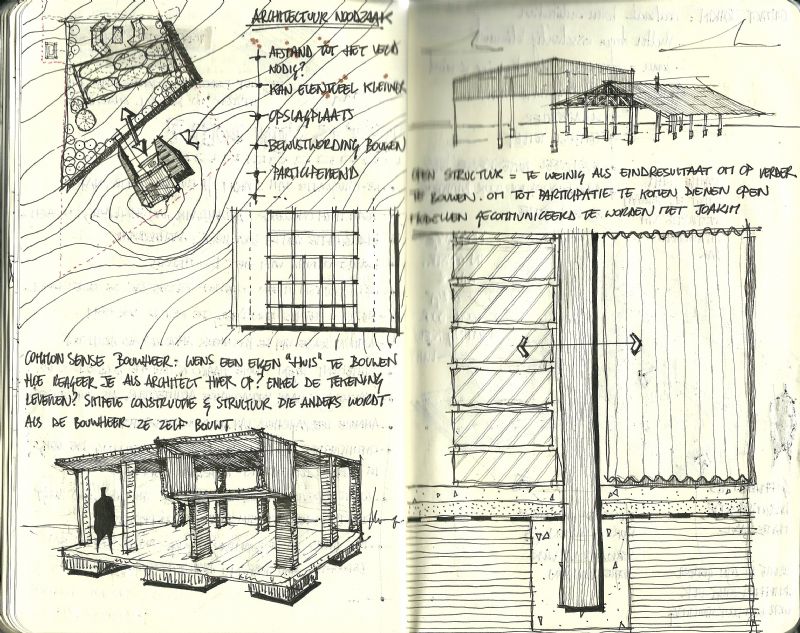 ARCHITECTUUR NOODZAAK
AFSTAND TOT HET VELD
NODIG?
KAN EVENTUEEL KLEINER
OPSLAGPLAATS
BEWUSTWORDING BOUWEN
PARTICIPEREND
COMMON SENSE BOUWHEER: WENS EEN EIGEN "HUIS" TE BOUWEN
HOE REAGEER JE ALS ARCHITECT HIER OP? ENKEL DE TEKENING
LEVEREN? SIMPELE CONSTRUCTIE & STRUCTUUR DIE ANDERS WORDT
ALS DE BOUWHEER ZE ZELF BOUWT
OPEN STRUCTUUR = TE WEINIG ALS EINDRESULTAAT OM OP VERDER
TE BOUWEN. OM TOT PARTICIPATIE TE KOMEN DIENEN OPEN
MODELLEN GECOMMUNICEERD TE WORDEN MET JOAKIM